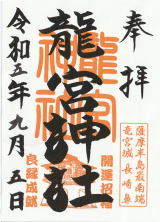 奉拝
薩摩半島最南端
竜宮城長崎鼻
龍宮神社
龍宮神社
開運招福
良縁成就
令和五年九月五日